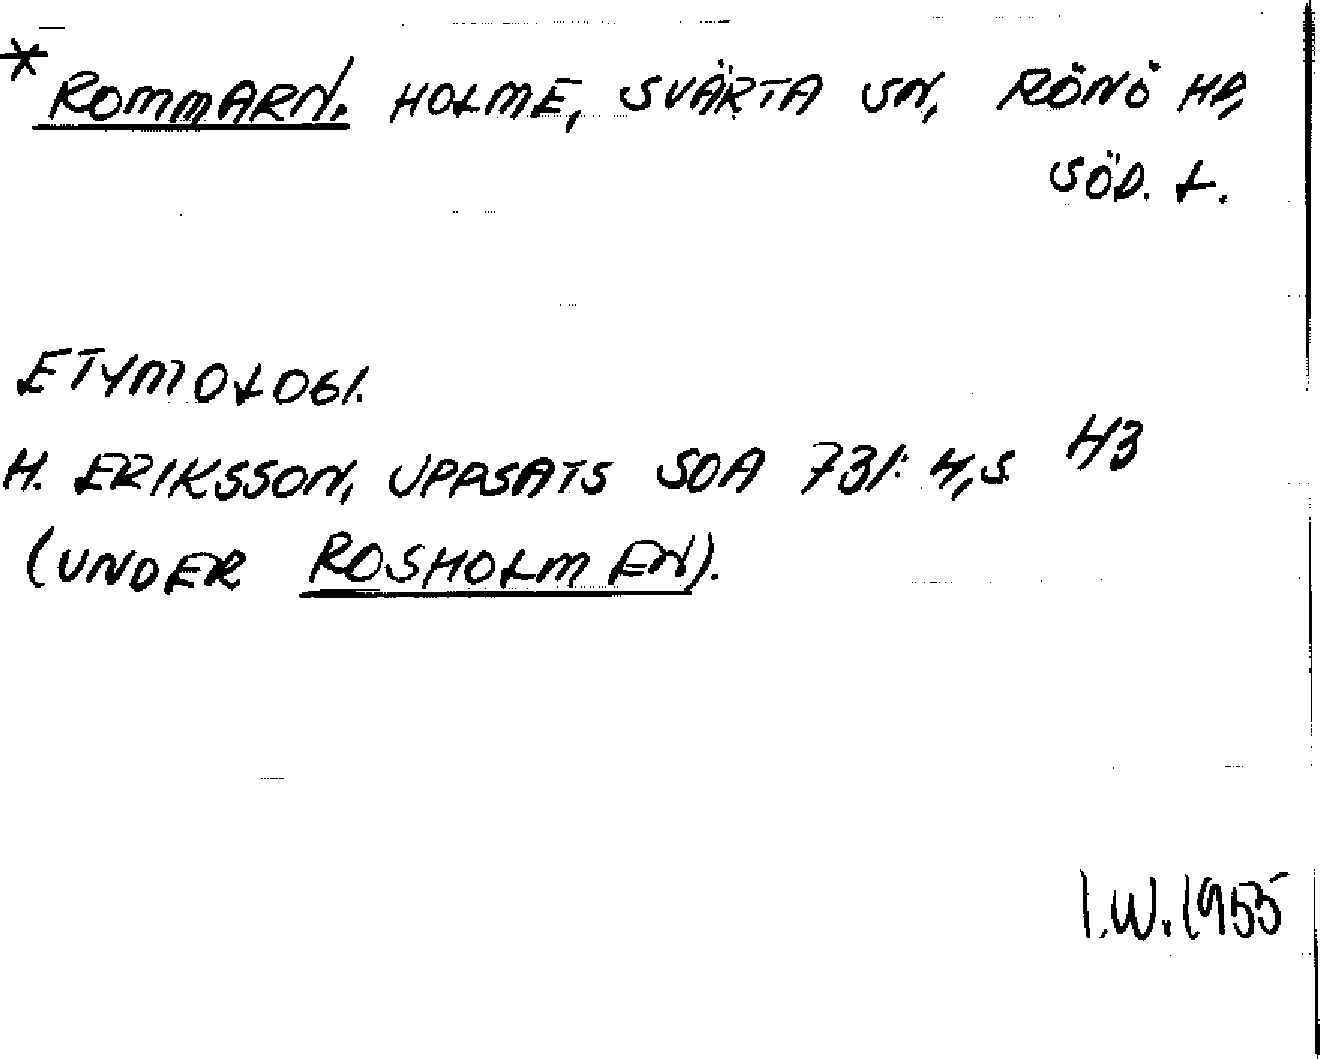 * ROMMARN. HOLME, SVÄRTA SN, RÖNÖ HD,
SÖD. L.
ETYMOLOGI.
H. ERIKSSON, UPPSATS SOA 731: 4, S 43
(UNDER ROSHOLMEN).
I.W. 1955